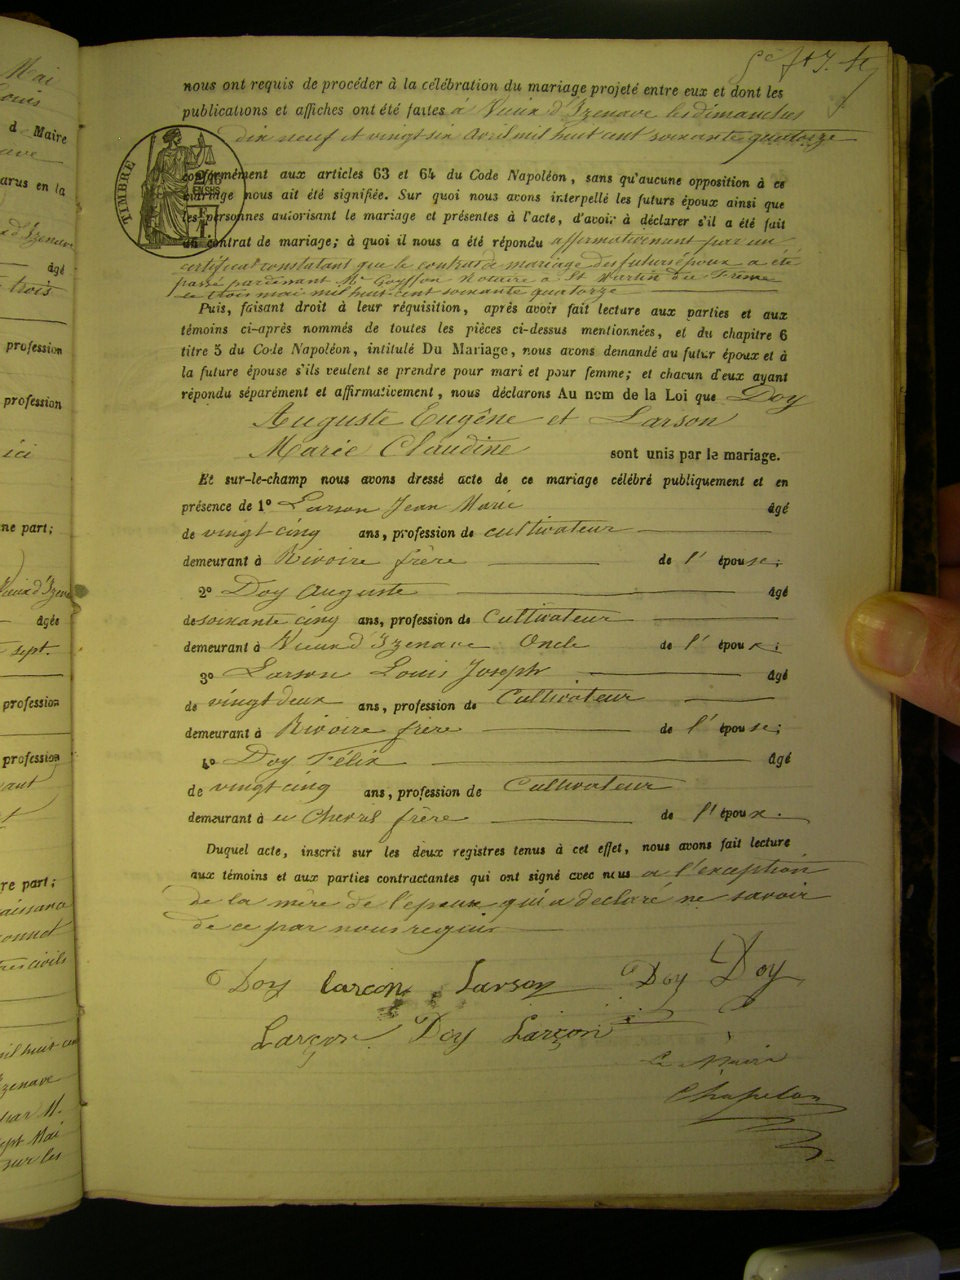 Mai
ouis
d Maire
ave
arus en la
d'Izenave
âgé
trois
profession
profession
ici
ne part;
Vieux d'Izenave
âgée
sept.
profession
profession
ant
re part;
aissance
onnet
res civils
mil huit cent
Izenave
par M.
sept Mai
sur les
nous ont requis de procéder à la célébration du mariage projeté entre eux et dont les
publications et affiches ont été faites à Vieux d'Izenave les dimanches
dix neuf et vingt six avril mil huit cent soixante quatorze
TIMBRE
conformément aux articles 63 et 64 du Code Napoléon, sans qu'aucune opposition à ce
mariage nous ait été signifiée. Sur quoi nous avons interpellé les futurs époux ainsi que
les personnes autorisant le mariage et présentes à l'acte, d'avoir à déclarer s'il a été fait
un contrat de mariage; à quoi il nous a été répondu affirmativement par un
certificat constatant que le contrat de mariage des futurs époux a été
passé pardevant Me Goyffon Notaire à St Martin du Frêne
le trois mai mil huit cent soixante quatorze
Puis, faisant droit à leur réquisition, après avoir fait lecture aux parties et aux
témoins ci-après nommés de toutes les pièces ci-dessus mentionnées, et du chapitre 6
titre 5 du Code Napoléon, intitulé Du Mariage, nous avons demandé au futur époux et à
la future épouse s'ils veulent se prendre pour mari et pour femme; et chacun d'eux ayant
répondu séparément et affirmativement, nous déclarons Au nom de la Loi que Doy
Auguste Eugêne et Larson
Marie Claudine sont unis par le mariage.
Et sur-le-champ nous avons dressé acte de ce mariage célébré publiquement et en
présence de 1° Larson Jean Marie âgé
de vingt cinq ans, profession de cultivateur
demeurant à Rivoire frère de l'épouse;
2° Doy Auguste âgé
de soixante cinq ans, profession de Cultivateur
demeurant à Vieux d'Izenave Oncle de l'époux;
3° Larson Louis Joseph âgé
de vingt deux ans, profession de Cultivateur
demeurant à Rivoire frère de l'épouse;
4° Doy Félix âgé
de vingt cinq ans, profession de Cultivateur
demeurant à en Chevril frère de l'époux.
Duquel acte, inscrit sur les deux registres tenus à cet effet, nous avons fait lecture
aux témoins et aux parties contractantes qui ont signé avec nous a l'exception
de la mère de l'époux qui a declaré ne savoir
de ce par nous requis
Doy larçon Larson Doy Doy
Larçon Doy Larçon
Le Maire
Chapelon